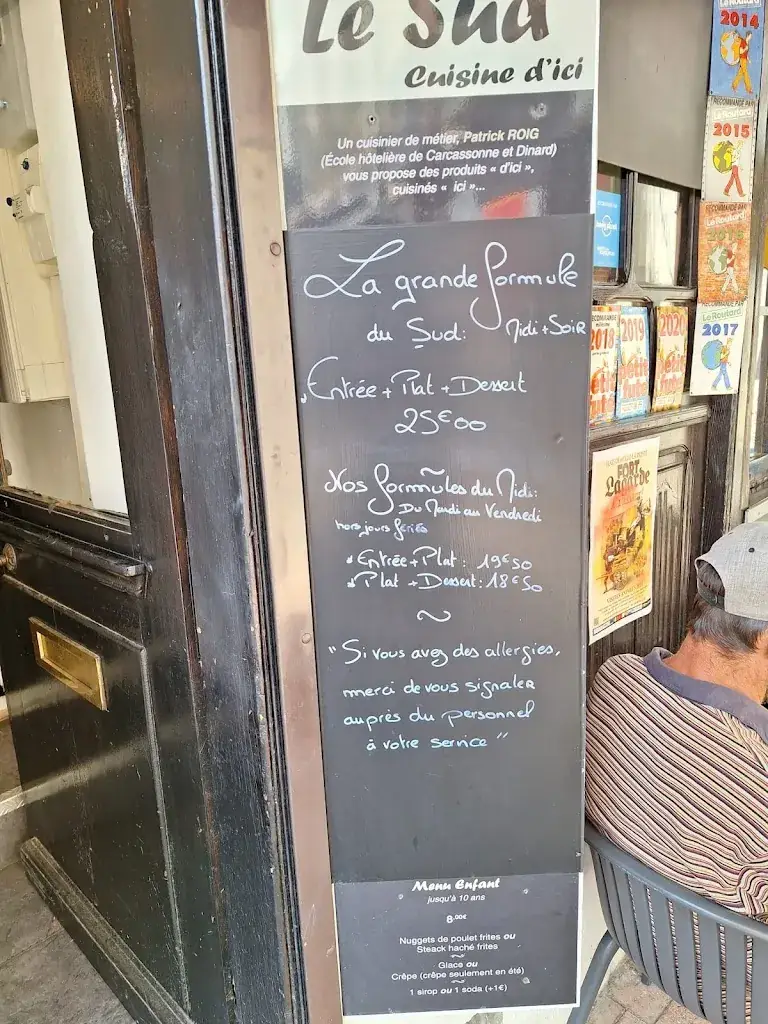 Le Sud
Cuisine d'ici
Un cuisinier de métier, Patrick ROIG
(École hôtelière de Carcassonne et Dinard)
vous propose des produits « d'ici »,
cuisinés « ici »...
La grande formule
du Sud: Midi + Soir
Entrée + Plat + Dessert
25€00
Nos formules du Midi:
Du Mardi au Vendredi
hors jours fériés
Entrée + Plat : 19€50
Plat + Dessert : 18€50
~
"Si vous avez des allergies,
merci de vous signaler
auprès du personnel
à votre service"
Menu Enfant
jusqu'à 10 ans
8.00€
Nuggets de poulet frites ou
Steack haché frites
~
Glace ou
Crêpe (crêpe seulement en été)
~
1 sirop ou 1 soda (+1€)
Le Routard
2014
RECOMMANDÉ PAR
Le Routard
2015
RECOMMANDÉ PAR
Le Routard
2016
Le Routard
2017
2018
2019
2020
Petit Futé
FORT
Lagarde